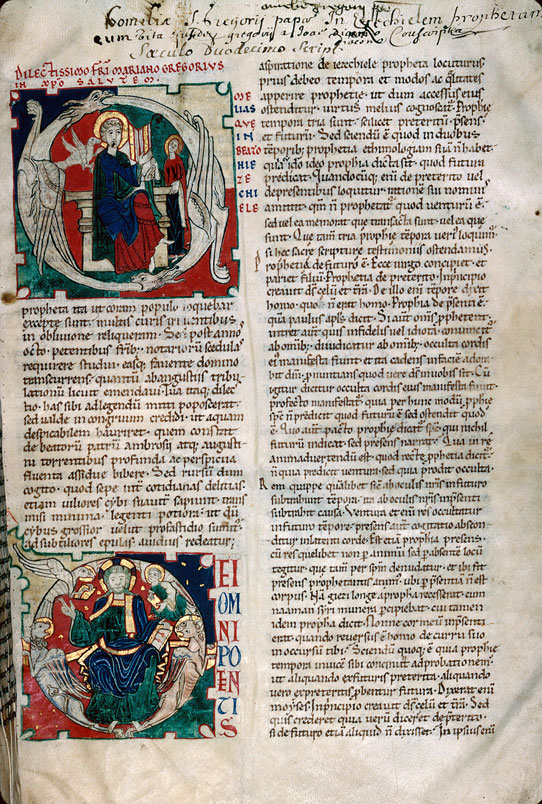 Homiliæ S. Gregorij papæ In Ezechielem prophetam
cum Vita ejusdem gregorij a Joan. Diacono Conscripta
Sæculo Duodecimo Script.
DILECTISSIMO FRI MARIANO GREGORIVS
IN XPO SALVTEM.
OME
LIAS
QVE
IN
BEATO
HIE
ZE
CHI
ELE
propheta ita ut coram populo loquebar
excepte sunt. multis curis irruentibus
in oblivione reliqueram. Sed post anno
octo. petentibus frib; notarioru scedulas
requirere studui. easq; favente domino
transcurrens. quantu ab angustiis tribu
lationu licuit emendavi. Tua itaq; dilec
tio. has sibi ad legendu mitti poposcerat.
sed valde incongruum credidi. ut aquam
despicabilem hauriret. quem constat
de beatoru patru ambrosii atq; augusti
ni torrentibus profunda ac perspicua
fluenta assidue bibere. Sed rursu dum
cogito. quod sepe int cotidianas delitias.
etiam viliores cybi suaves sapiunt. trans
misi minima. legenti potiora. ut du
cybus grossior velut pro fastidio sumit.
ad subtiliores epulas avidius redeatur;
DEI
OM
NI
PO
EN
TIS
aspiratione de iezechiele propheta locuturus.
prius debeo tempora et modos ac qlitates
aperire prophetie. ut dum accessus eius
ostenditur. virtus melius cognoscat. Prophie
tempora tria sunt. scilicet preteritu. psens.
et futuru. Sed sciendu e quod in duobus
teporib; prophetia ethimologiam sua n habet.
quia ideo prophia dicta sit. quod futura
predicat. Quando eni de preterito vel
de presenti loquitur. ratione sui nominis
amittit. qm n prophetat quod venturu e.
sed vel ea memorat que transacta sunt. vel ea que
sunt. Que tam tria prophie tepora veru loquimur.
si hec sacre scripture testimoniis ostendamus.
Prophetia de futuro e. Ecce virgo concipiet. et
pariet filiu. Prophetia de preterito. In principio
creavit ds celu et tra. De illo eni tepore dixit
homo. quo n erat homo. Prophia de psenti e.
qua paulus apls dicit. Si aut oms pphetent.
intret aut quis infidelis vel idiota. convincit
ab omib;. diiudicatur ab omib;. occulta cordis
ei manifesta fiunt. et ita cadens in facie ador
bit dm. pnuntians quod vere ds in vobis sit. Cu
igitur dicitur occulta cordis eius manifesta fiunt.
profecto monstrat. quia per hunc modu pphie
sps n predicit quod futuru e. sed ostendit quod
e. Quo aut pacto prophie dicit sps qui nichil
futuru indicat. sed presens narrat. Qua in re
animadvertendu est. quod recte pphetia dicit.
n quia predicit ventura. sed quia prodit occulta.
Rem quippe qualibet sic ab oculis nris in futuro
subtrahunt tepora. ita ab oculis nris in psenti
subtrahit causa. Ventura et eni res occultatur
in futuro tepore. presens aut cogitatio abscon
ditur in latenti corde. Est etia prophia presens.
cu res quelibet non p animu sed p absente locu
tegitur. que tam per spm denudatur. et ibi fit
presens prophetantis animus. ubi p psentia n est
corpus. Na giezi longe a propha recesserat. cum
naaman syri munera pcipiebat. cui tamen
idem propha dicit. Nonne cor meu in psenti
erat. quando reversus e homo de curru suo
in occursu tibi. Sciendu quoq; e. quia prophie
tempora invice sibi concinunt ad probationem.
ut aliquando ex futuris preterita. aliquando
vero ex preteritis pbentur futura. Dixerat eni
moyses. In principio creavit ds celu et tra. Sed
quis crederet quia veru diceret de pterito.
si de futuro etia aliquid n dixisset. In ipsius eni